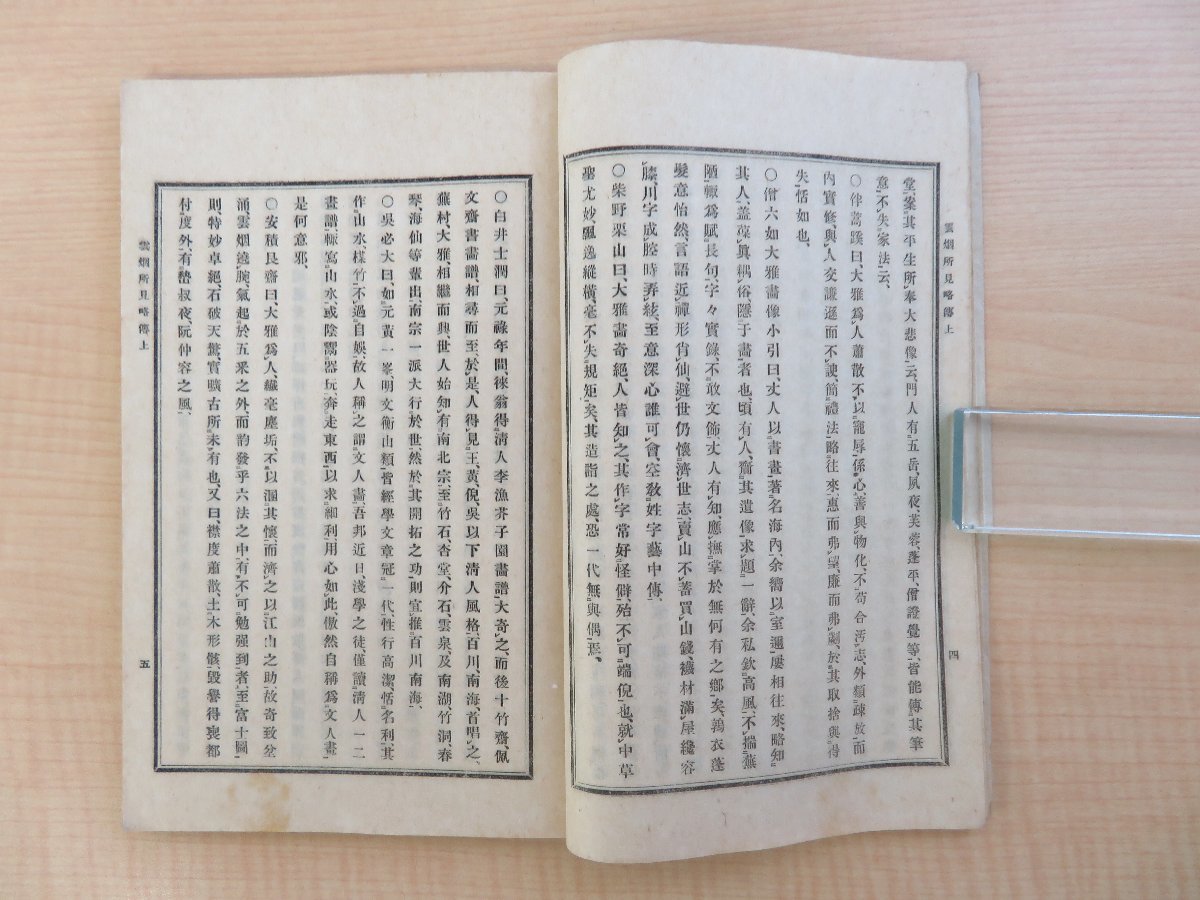 雲烟所見略傳上
四
堂、案其平生所奉大悲像云、門人有五岳、夙夜、芙蓉、蓬平、僧證覺等、皆能傳其筆
意、不失家法云、
○伴蒿蹊曰、大雅爲人蕭散不以寵辱係心、善與物化、不苟合汚志、外類疎放而
內實修、與人交謙遜而不諛、簡禮法略往來、惠而弗望、廉而弗劌、於其取捨與得
失恬如也、
○僧六如大雅畵像小引曰、丈人以書畵著名海內、余嚮以室邇屢相往來、略知
其人、盖葆眞耦俗、隱于畵者也、頃有人齎其遺像求題一辭、余私欽高風、不揣蕪
陋、輙爲賦長句、字々實錄、不敢文飾、丈人有知、應撫掌於無何有之鄕矣、鶉衣蓬
髮意怡然、言語近禪形肖仙、避世仍懷濟世志、賣山不蓄買山錢、襪材滿屋纔容
膝、川字成腔時弄絃、至意深心誰可會、空敎姓字藝中傳、
○柴野栗山曰、大雅畵奇絕、人皆知之、其作字常好怪僻、殆不可端倪也、就中草
聖尤妙、飄逸縱橫、毫不失規矩矣、其造詣之處、恐一代無與偶焉、
○白井士潤曰、元祿年間、徠翁得淸人李漁芥子園畵譜大奇之、而後十竹齋、佩
文齋書畵譜相尋而至、於是人得見王、黃、倪、吳以下淸人風格、百川、南海首唱之、
蕪村、大雅相繼而興、世人始知有南北宗、至竹石、杏堂、介石、雲泉、及南湖、竹洞、春
琴、海仙等輩出、南宗一派大行於世、然於其開拓之功則宜推百川南海、
○吳必大曰、如元黃一峯明文衡山類、皆經學文章冠一代、性行高潔、恬名利、其
作山水、樣竹不過自娛、故人稱之謂文人畵、吾邦近日淺學之徒、僅讀淸人一二
畵譜、輙寫山水、或陰鬻器玩、奔走東西、以求細利、用心如此、傲然自稱爲文人畵、
是何意邪、
○安積艮齋曰、大雅爲人、纖毫塵垢、不以溷其懷、而濟之以江山之助、故奇致坌
涌、雲烟繞腕、氣起於五釆之外、而韵發乎六法之中、有不可勉强到者、至富士圖
則特妙卓絕、石破天驚、實曠古所未有也、又曰、襟度蕭散、土木形骸、毀譽得喪都
付度外、有嵆叔夜、阮仲容之風、
雲烟所見略傳上
五